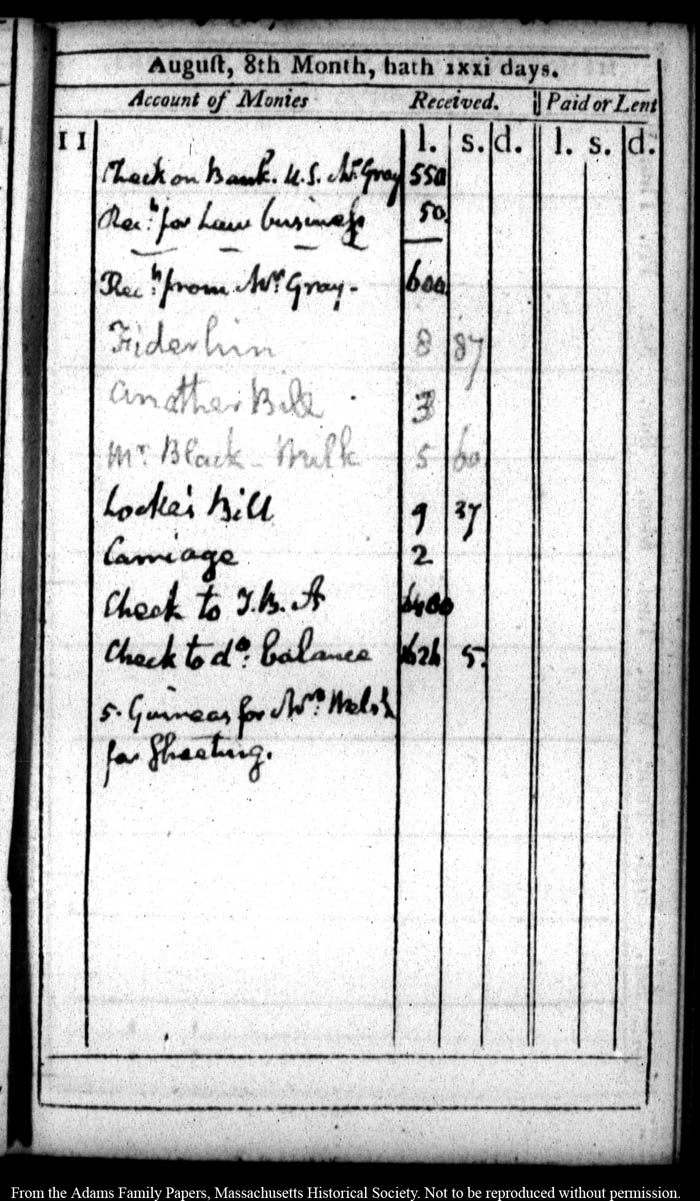 August, 8th Month, hath xxxi days.
Account of Monies Received. Paid or Lent
11 l. s. d. l. s. d.
Check on Bank. U.S. Mr. Gray 550
Recd. for Law business 50.
Recd. from Mr. Gray - 600
8 87
another Bill 3
Mr. Black - Milk 5 60
Locke's Bill 9 37
Carriage 2
Check to T. B. A 400
Check to do. balance 626 5.
5. Guineas for Mrs. Welsh
for Sheeting.
From the Adams Family Papers, Massachusetts Historical Society. Not to be reproduced without permission.